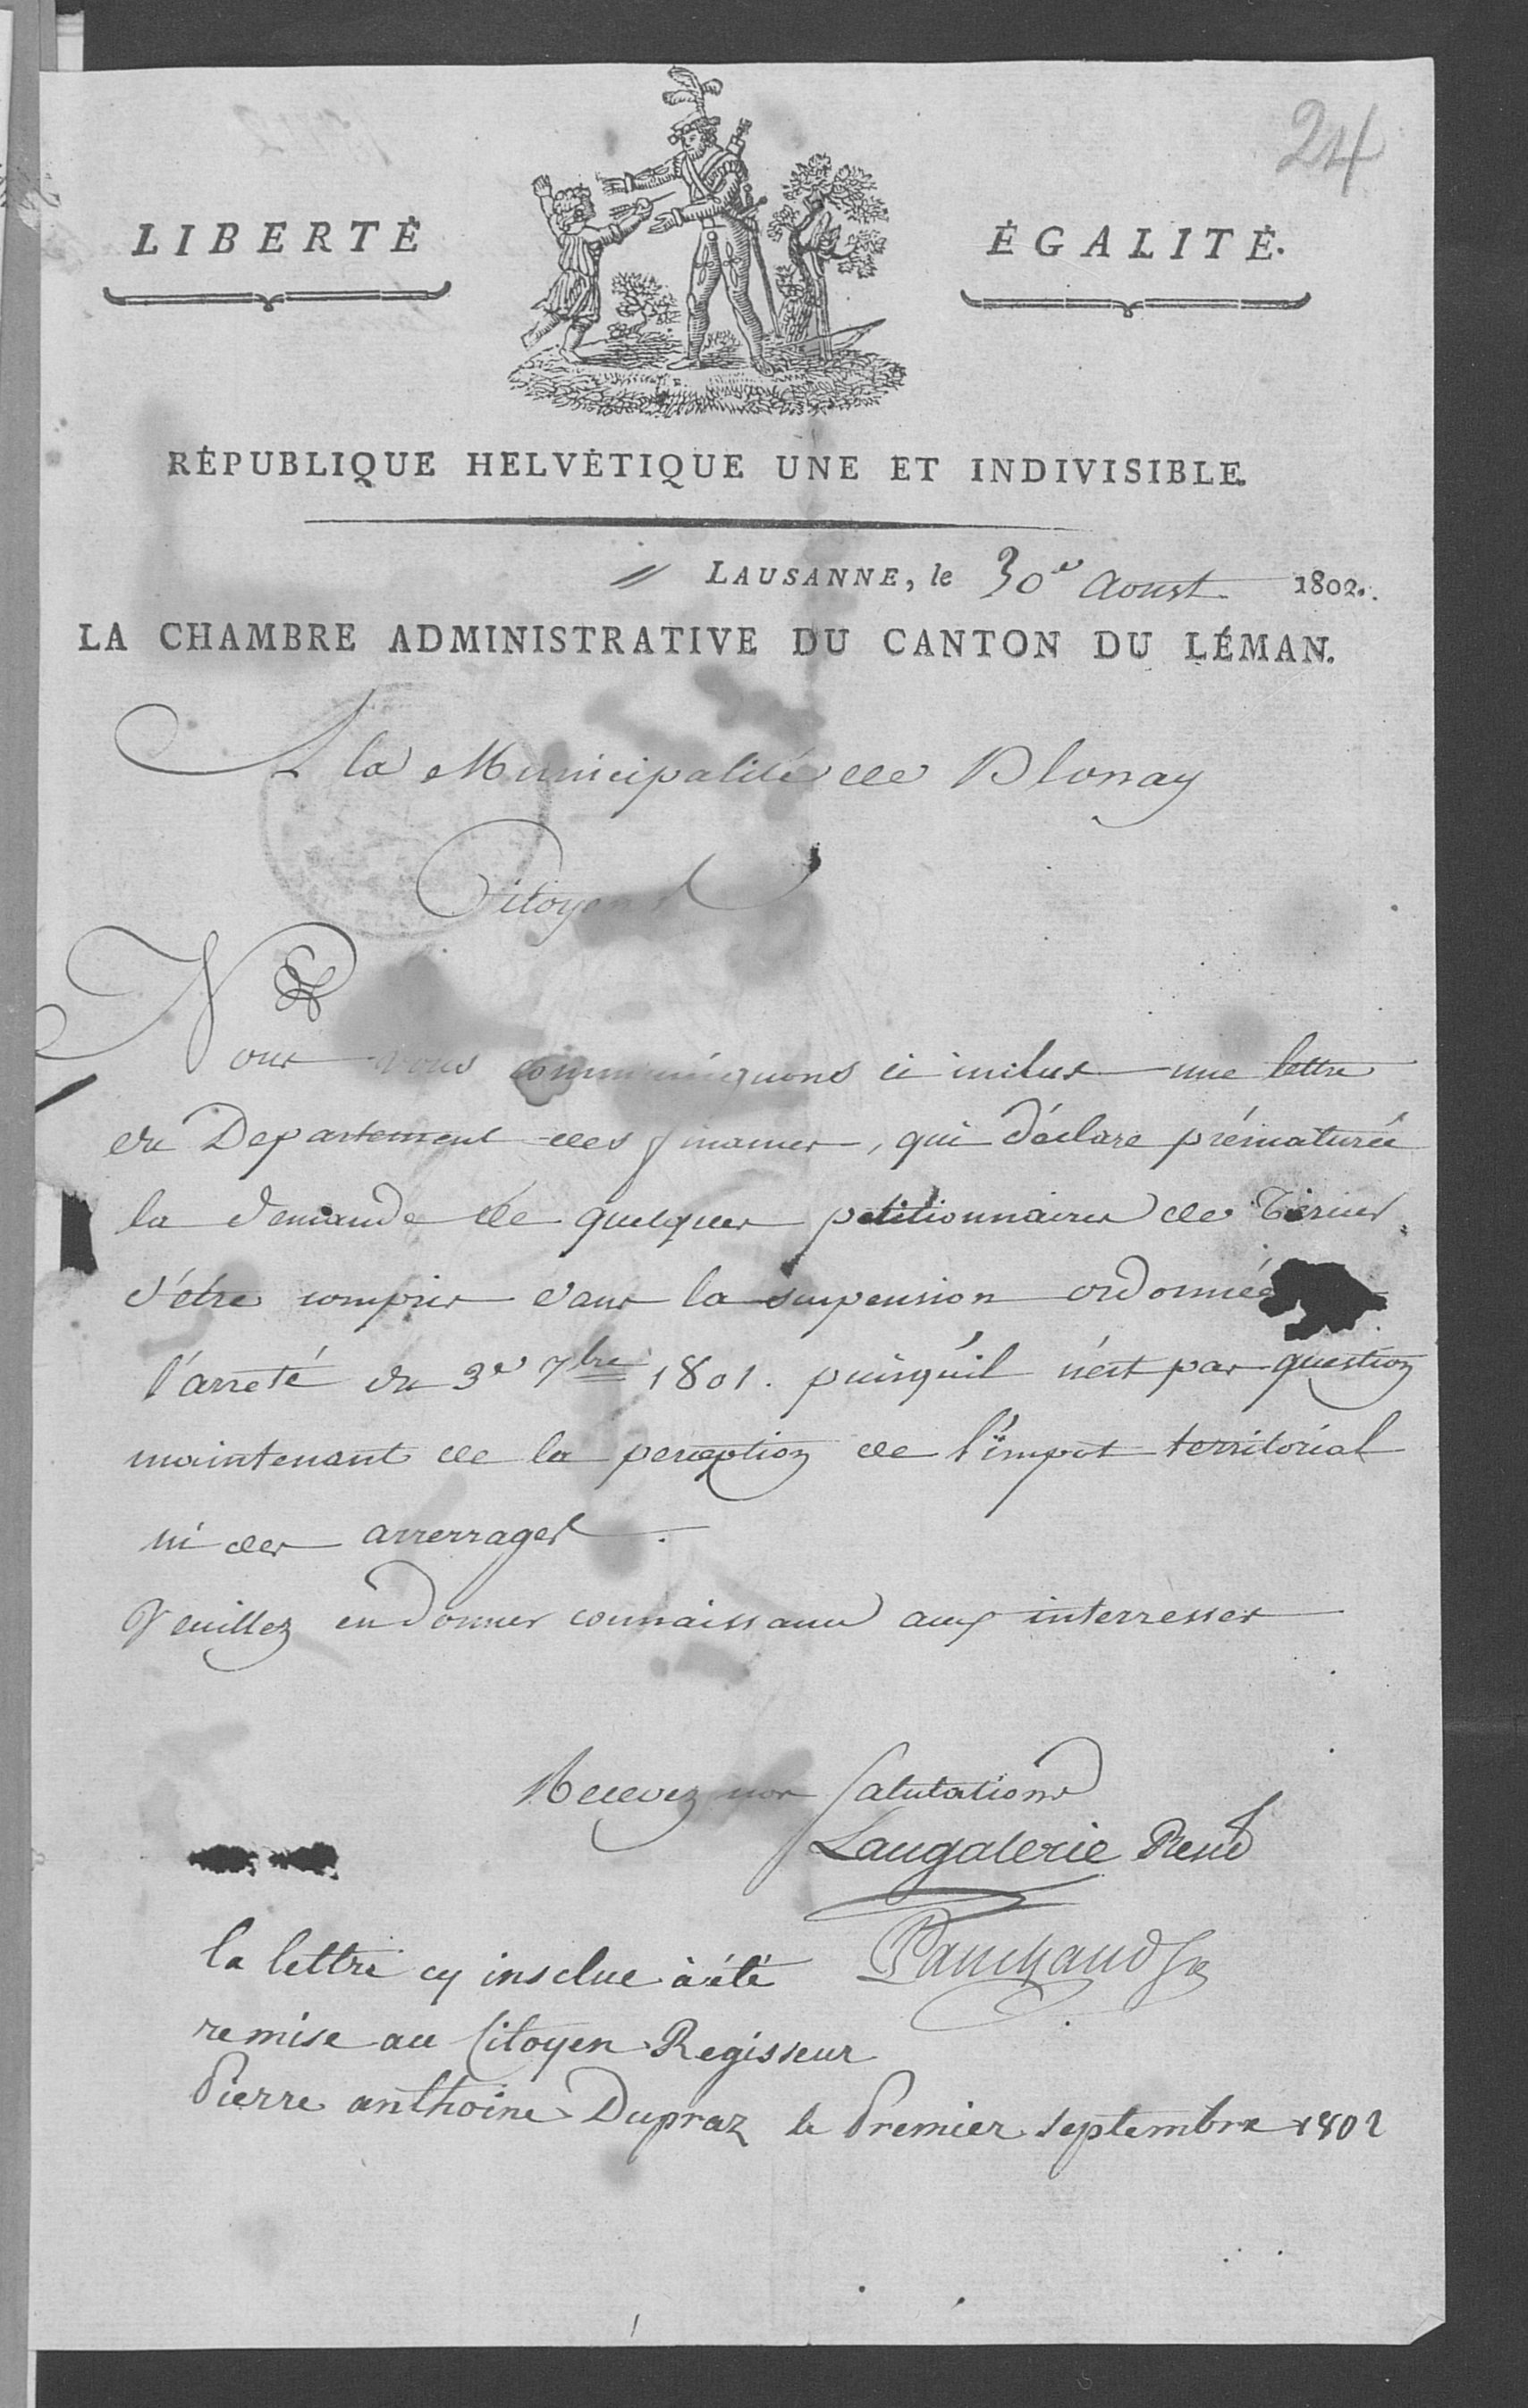 24
LIBERTÉ
ÉGALITÉ.
RÉPUBLIQUE HELVÉTIQUE UNE ET INDIVISIBLE.
LAUSANNE, le 30e Aoust 1802.
LA CHAMBRE ADMINISTRATIVE DU CANTON DU LÉMAN.
A la Municipalité de Blonay
Citoyens
Nous vous communiquons ci inclus une lettre
du Departement des finances, qui déclare prématurée
la demande de quelques petitionnaires de
d'être compris dans la suspension ordonnée
l'arreté du 3e 7bre 1801. puisqu'il n'est pas question
maintenant de la perception de l'impot territorial
ni des arrerrages.
Veuillez en donner connaissance aux interresses
Recevez nos salutations
Laugalerie
Panchaud
la lettre cy insclue à été
remise au Citoyen Regisseur
Pierre anthoine Dupraz le Premier septembre 1802